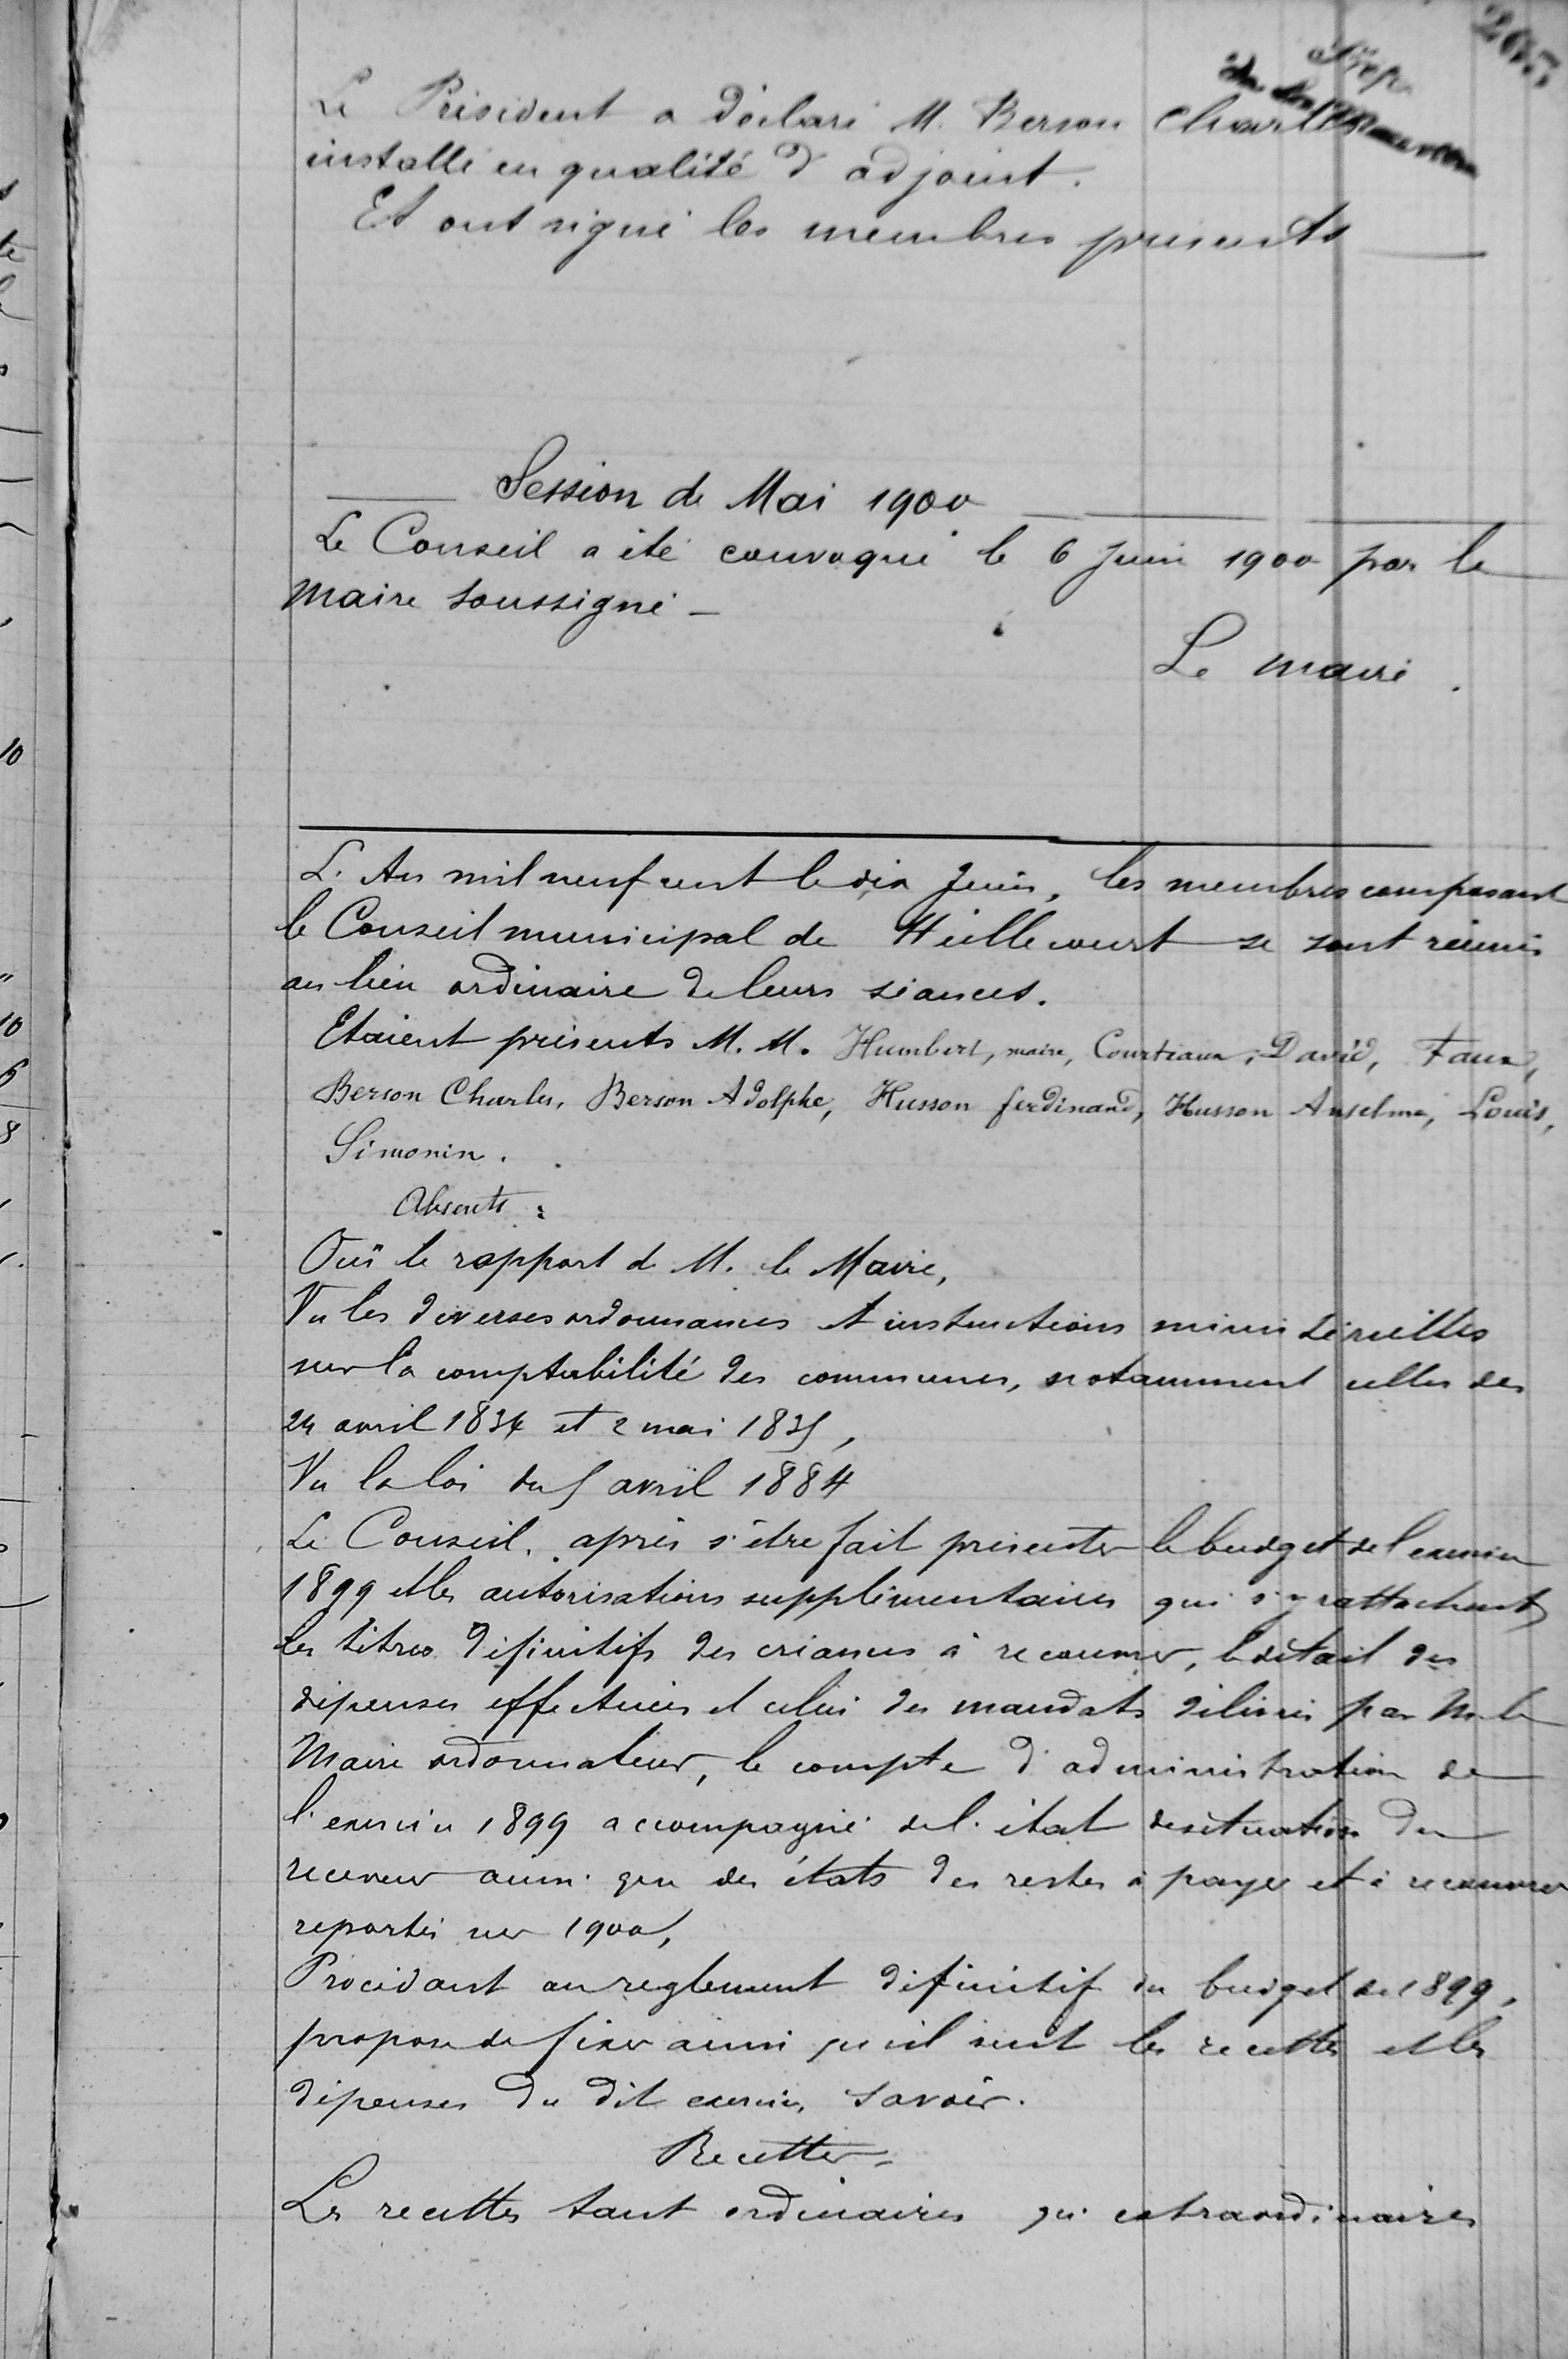 Le Président a déclaré M. Berson Charles
installé en qualité d'adjoint.
Et ont signé les membres présents
Session de Mai 1900
Le Conseil a été convoqué le 6 Juin 1900 par le
Maire soussigné -
Le maire
L'An mil neuf cent le dix Juin, les membres composant
le Conseil municipal de Heillecourt se sont réunis
au lieu ordinaire de leurs séances.
Etaient présents M. M. Humbert, maire, Courtiaux, David, Faux,
Berson Charles, Berson Adolphe, Husson ferdinand, Husson Anselme, Louis,
Simonin.
Absents :
Ouï le rapport de M. le Maire,
Vu les diverses ordonnances et instructions ministérielles
sur la comptabilité des communes, notamment celles des
24 avril 1834 et 2 mai 1835,
Vu la loi du 5 avril 1884
Le Conseil, après s'être fait présenter le budget de l'exercice
1899 et les autorisations supplémentaires qui s'y rattachent,
les titres définitifs des créances à recouvrer, le détail des
dépenses effectuées et celui des mandats délivrés par M. le
Maire ordonnateur, le compte d'administration de
l'exercice 1899 accompagné de l'état de situation du
receveur ainsi que des états des restes à payer et à recouvrer
reportés sur 1900,
Procédant au reglement définitif du budget de 1899,
propose de fixer ainsi qu'il suit les recettes et les
dépenses du dit exercice, Savoir.
Recettes
Les recettes tant ordinaires qu'extraordinaires